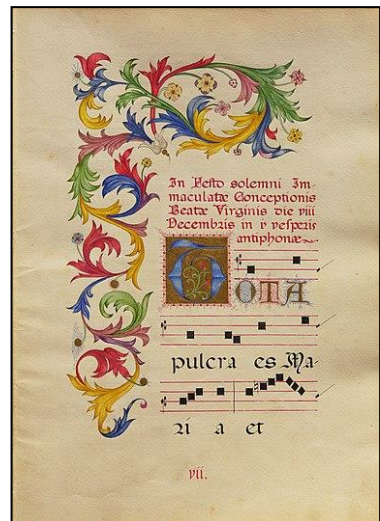 In Festo solemni Im-
maculatæ Conceptionis
Beatæ Virginis die viii
Decembris in i vesperis
antiphonæ
TOTA
pulcra es Ma-
ri a et
vii.